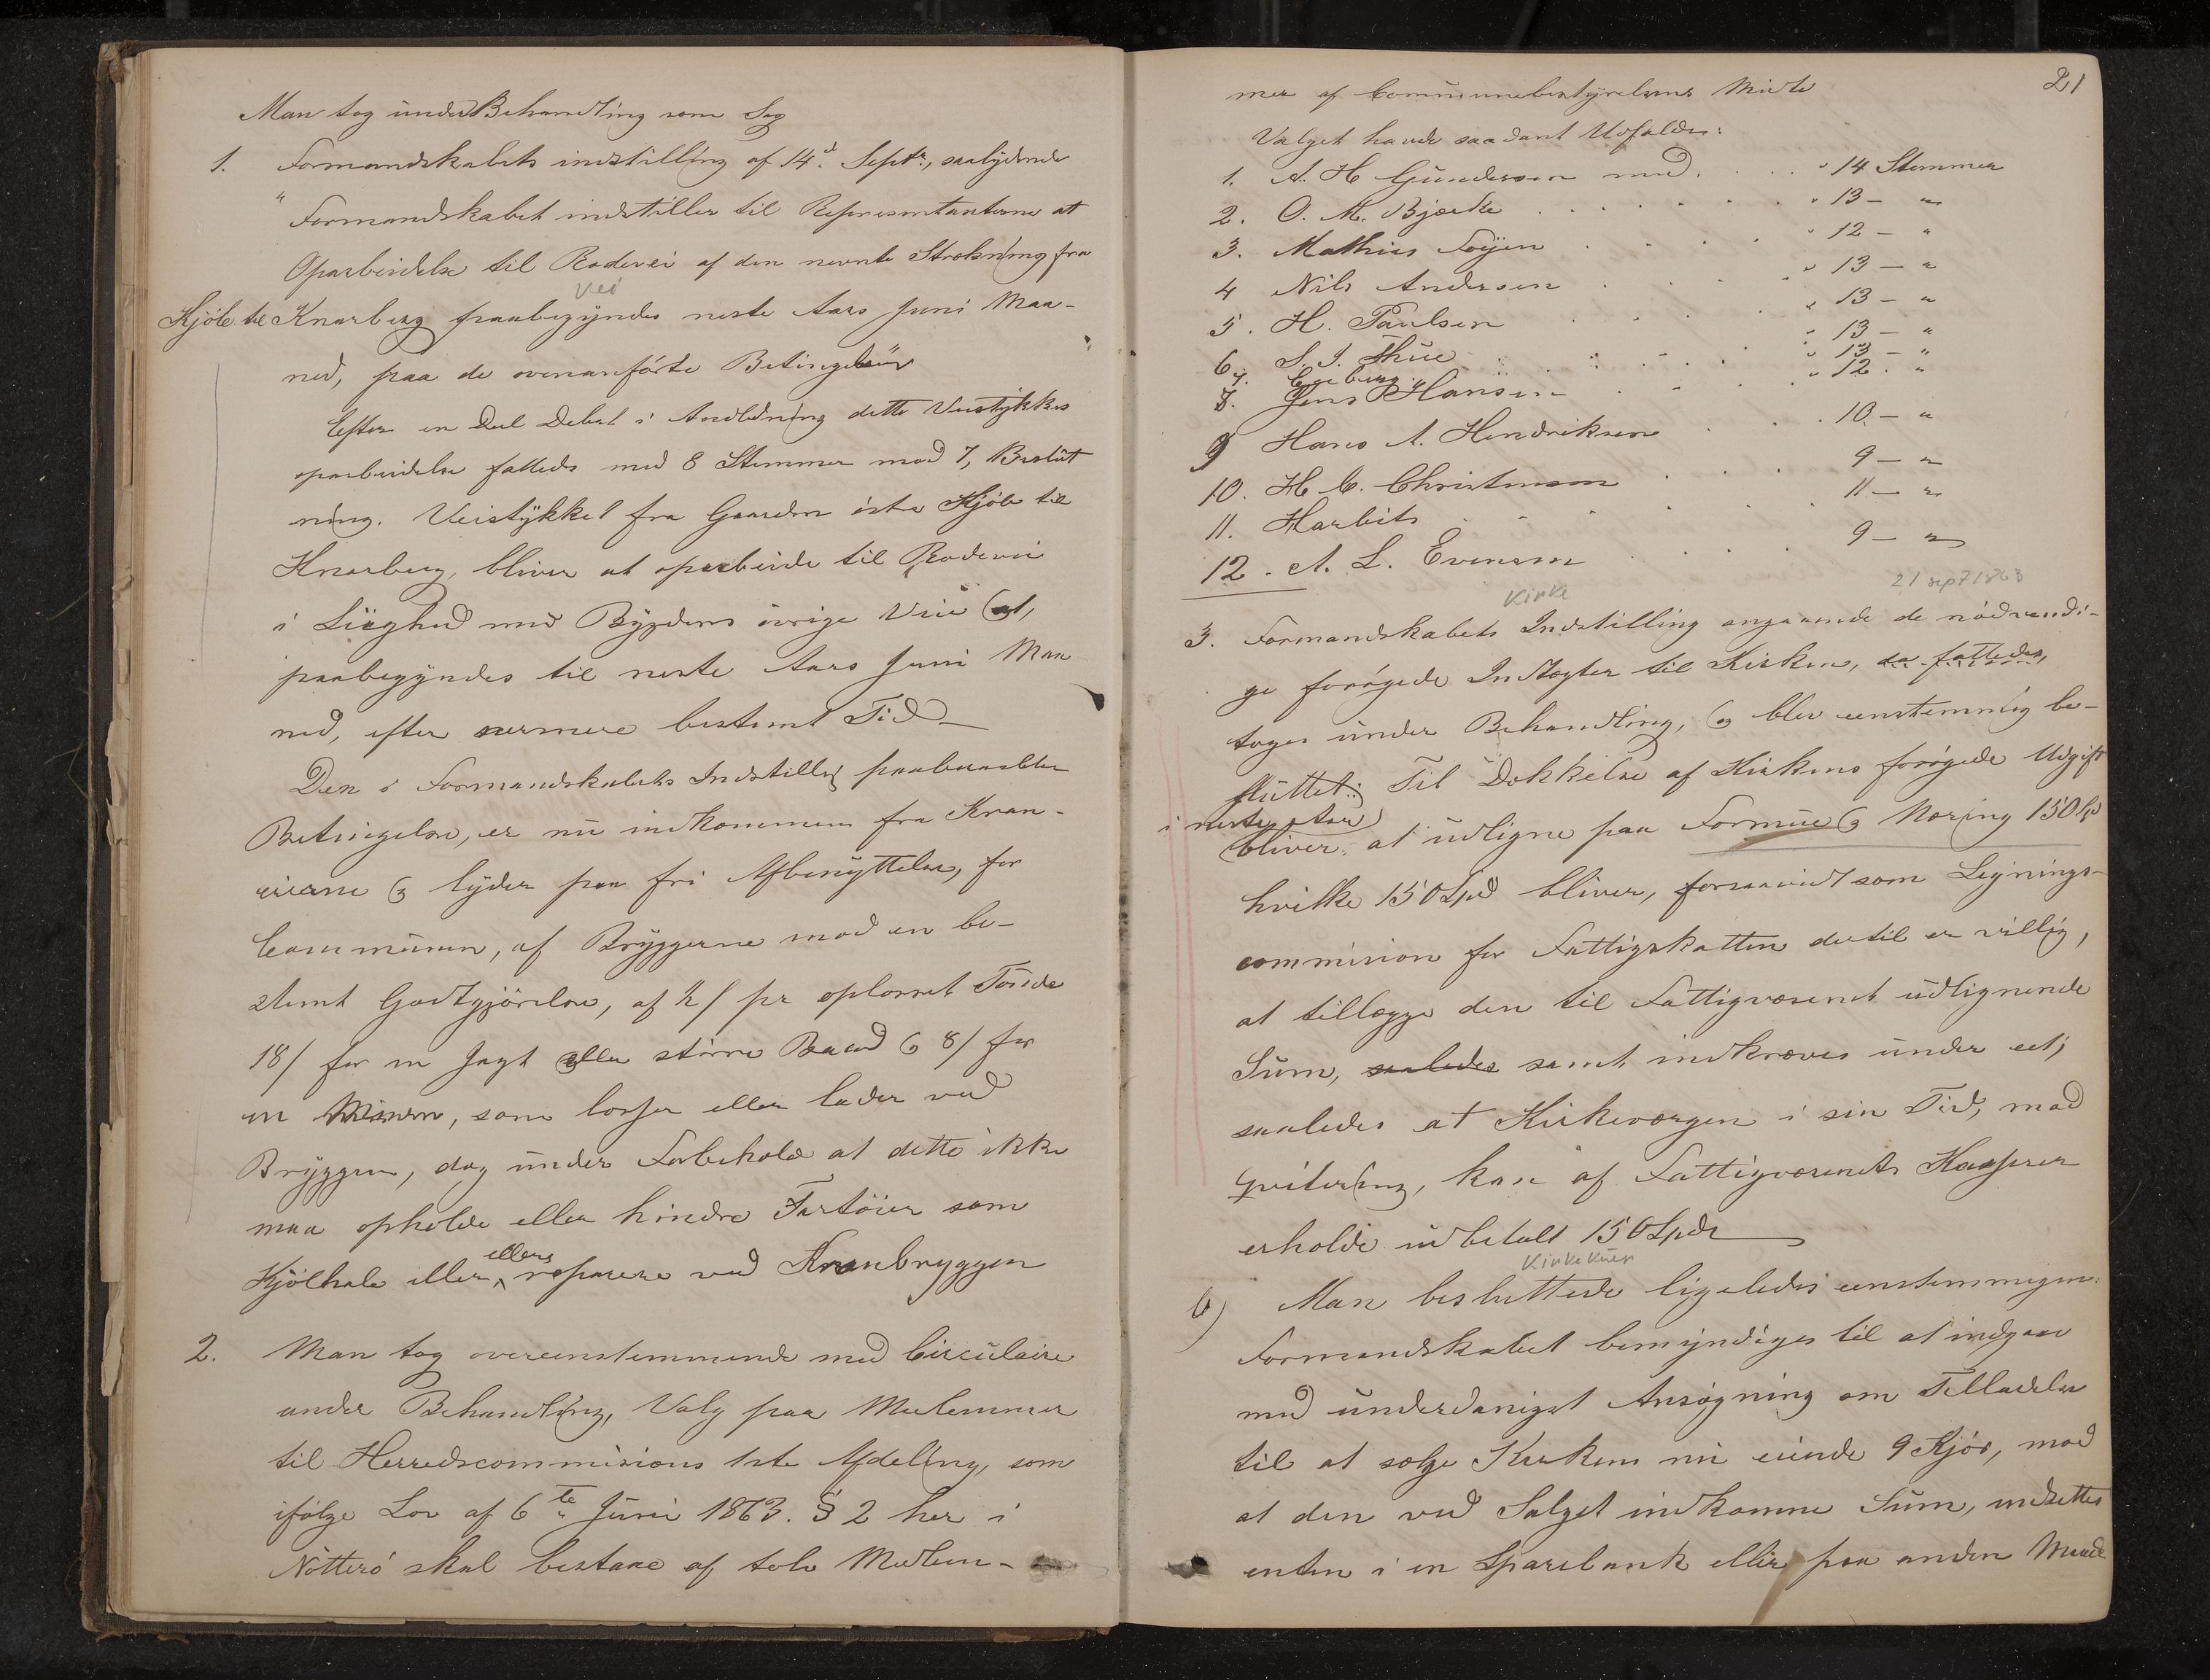 Man tog under Behandling som Sag
1. Formandskabets indstilling af 14d. Septr., saalydende
" Formandskabet indstiller til Representanterne at
Oparbeidelse til Rodevei af den nevnte Strekning fra
Vei
Kjöle til Knarberg paabegyndes neste Aars Juni Maa-
ned, paa de ovenanförte Betingelser
Efter en Deel Debat i Anledning dette Veistykkes
oparbeidelse fattedes med 8 Stemmer mod 7, Beslut
ning. Veistykket fra Gaarden östre Kjöle til
Knarberg, bliver at oparbeide til Rodevei
i Liighed med Bygdens övrige Veie at,
paabegyndes til neste Aars Juni Maa
ned, efter nermere bestemt Tid
Den i Formandskabets Indstilling paaberaabte
Betingelse, er nu indkommen fra Kran-
eierne og lyder paa fri Afbenyttelse, for
Communen, af Bryggerne mod en be-
stemt Godtgjörelse, af 2/ pr oplosset Tönde
18/ for en Jagt eller större Baad og 8/ for
en Mindre, som losser eller lader ved
Bryggen, dog under Forbehold at dette ikke
maa opholde eller hindre Fartöier som
ellers
Kjölhale eller reparere ved Kranbryggen
2. Man tog overeenstemmende med Circulaire
under Behandling, Valg paa Medlemmer
til Herredscommisions 1ste Afdeling, som
ifölge Lov af 6te Juni 1863. § 2 her i
Nötterö skal bestaae af tolv Medlem-
21
mer af Communebestyrelsens Midte
Valget havde saadant Udfald:
1. A. H Gundersen med . . . " 14 Stemmer
2. O. M. Bjerke . . . " 13 — "
3. Mathias Föyen . . . " 12 — "
4 Nils Andersen . . . " 13 — "
5. H. Paulsen . . . " 13 — "
6. S. J. Thue . . . " 13 — "
7. Egeberg . . . " 13 — "
8. Jens Hansen . . . " 12 . "
9 Hans A. Hendriksen . . . 10 — "
10. H. C. Christensen . . . 9 — "
11. Harbits . . . 11 — "
12. A. L. Evensen . . . 9 — "
Kirke 21 sep 1863
3. Formandskabets Indstilling angaaende de nödvendi-
ge forögede Indtægter til Kirken, da fattedes,
toges under Behandling, og blev eenstemmig be-
sluttet: Til Dekkelse af Kirkens forögede Udgift
i neste Aar
bliver at udligne paa Formue og Næring 150 Spd
hvilke 150 Spd bliver, forsaavidt som Lignings-
commision for Fattigskatten dertil er villig,
at tillægge den til Fattigvæsenet udlignende
Sum, saaledes samt indkræves under eet;
saaledes at Kirkeværgen i sin Tid, mod
Qvitering, kan af Fattigvæsenets Kasserer
erholde udbetalt 150 Spdr
Kirkekuer
b) Man besluttede ligeledes eenstemmigen:
Formandskabet bemyndiges til at indgaae
med underdanigst Ansögning om Tilladelse
til at sælge Kirkens nu eiende 9 Kjör, mod
at den ved Salget indkomne Sum, indsettes
enten i en Sparebank eller paa anden Maade